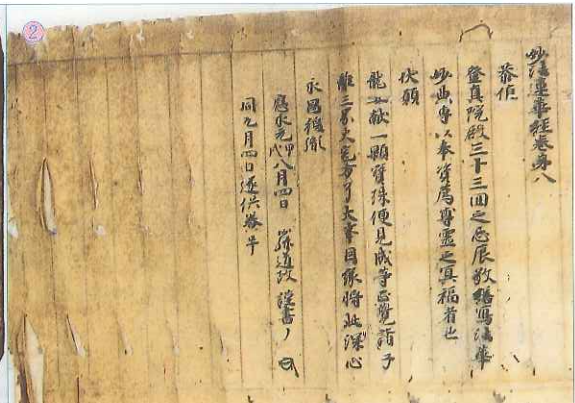 ②
妙法蓮華経巻第八
恭惟
登真院殿三十三回之忌辰敬繕寫法華
妙典専以奉資為尊霊之冥福者也
伏願
龍女献一顆寶珠便見成等正覚諸子
離三界火宅方了大事因縁将此深心
永固
應永元甲戌八月四日 孫道政 謹書
同九月四日遂供養畢